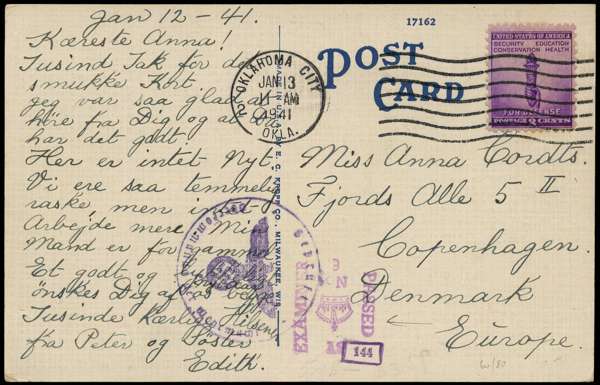 Jan 12-41.
Kæreste Anna!
Tusind Tak for de
smukke Kort.
jeg var saa glad
høre fra Dig og at
har det godt.
Her er intet Nyt.
Vi ere saa temmelig
raske, men intet
Arbejde mere. Min
Mand er for gammel
Et godt og
ønskes Dig af os begge
Tusinde kærlige Hilsener
fra Peter og Søster
Edith.
17162
POST
CARD
OKLAHOMA CITY
JAN 13
11 - AM
1941
OKLA.
UNITED STATES OF AMERICA
SECURITY EDUCATION
CONSERVATION HEALTH
FOR DEFENSE
POSTAGE CENTS
E. C. KROPP CO., MILWAUKEE, WIS.
Miss Anna Cordts.
Fjords Alle 5 II
Copenhagen.
Denmark
Europe.
EXAMINER
3
N
PASSED
144